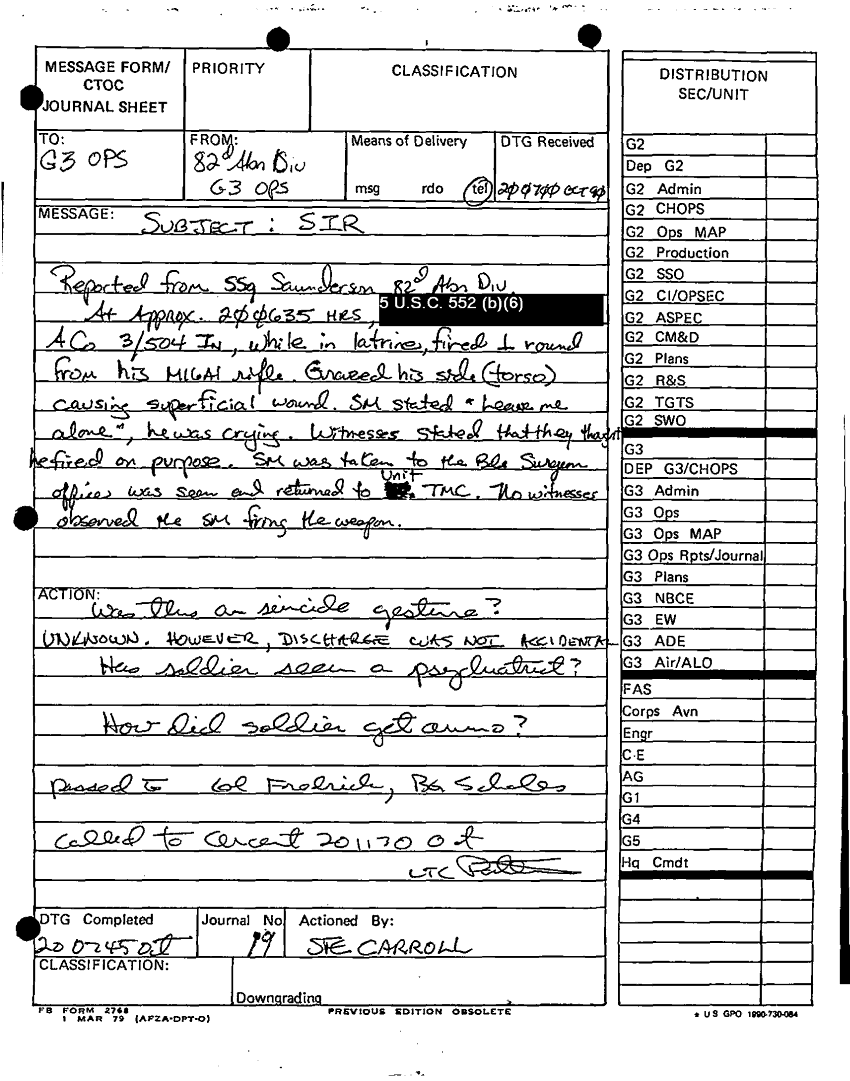 MESSAGE FORM/
CTOC
JOURNAL SHEET
PRIORITY
CLASSIFICATION
TO:
G3 OPS
FROM:
82d Abn Div
G3 OPS
Means of Delivery
msg rdo tel
DTG Received
200700 OCT 90
MESSAGE:
SUBJECT: SIR
Reported from SSg Saunderson 82d Abn Div.
At Approx. 200635 HRS, 5 U.S.C. 552 (b)(6)
A Co 3/504 In, while in latrines, fired 1 round
from his M16A1 rifle. Grazed his side (torso)
causing superficial wound. SM stated "Leave me
alone", he was crying. Witnesses stated that they thought
he fired on purpose. SM was taken to the Bde Surgeon
office was seen and returned to Unit TMC. No witnesses
observed the SM firing the weapon.
ACTION:
Was this an suicide gesture?
UNKNOWN. HOWEVER, DISCHARGE WAS NOT ACCIDENTAL
Has soldier seen a psychiatrist?
How did soldier get ammo?
passed to Col Fredrich, BG Scholes
called to Carcent 201130 Oct
LTC
DTG Completed
200745 Oct
Journal No
19
Actioned By:
CARROLL
CLASSIFICATION:
Downgrading
FB FORM 2768
1 MAR 79 (AFZA-DPT-O)
PREVIOUS EDITION OBSOLETE
DISTRIBUTION
SEC/UNIT
G2
Dep G2
G2 Admin
G2 CHOPS
G2 Ops MAP
G2 Production
G2 SSO
G2 CI/OPSEC
G2 ASPEC
G2 CM&D
G2 Plans
G2 R&S
G2 TGTS
G2 SWO
G3
DEP G3/CHOPS
G3 Admin
G3 Ops
G3 Ops MAP
G3 Ops Rpts/Journal
G3 Plans
G3 NBCE
G3 EW
G3 ADE
G3 Air/ALO
FAS
Corps Avn
Engr
C-E
AG
G1
G4
G5
Hq Cmdt
* US GPO 1990-730-084